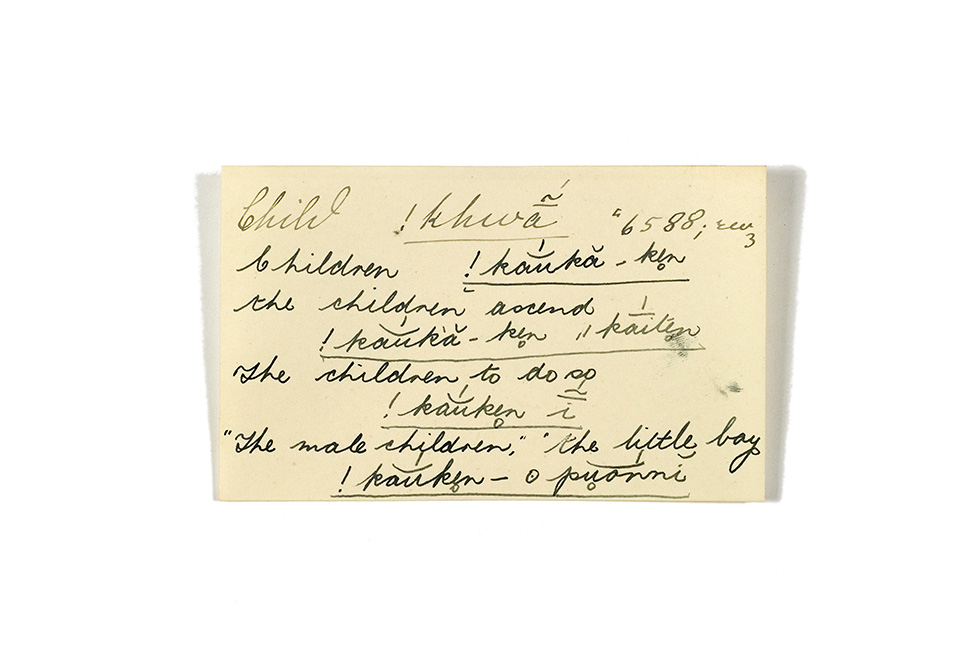 Child !khwã́ "6588;
Children !káukă-kẹn
the children ascend
!káukă-kẹn ,,káitẹn
The children, to do so
!káukẹn ĩ
"The male children," "the little boy
!káukẹn - o pụónnĭ